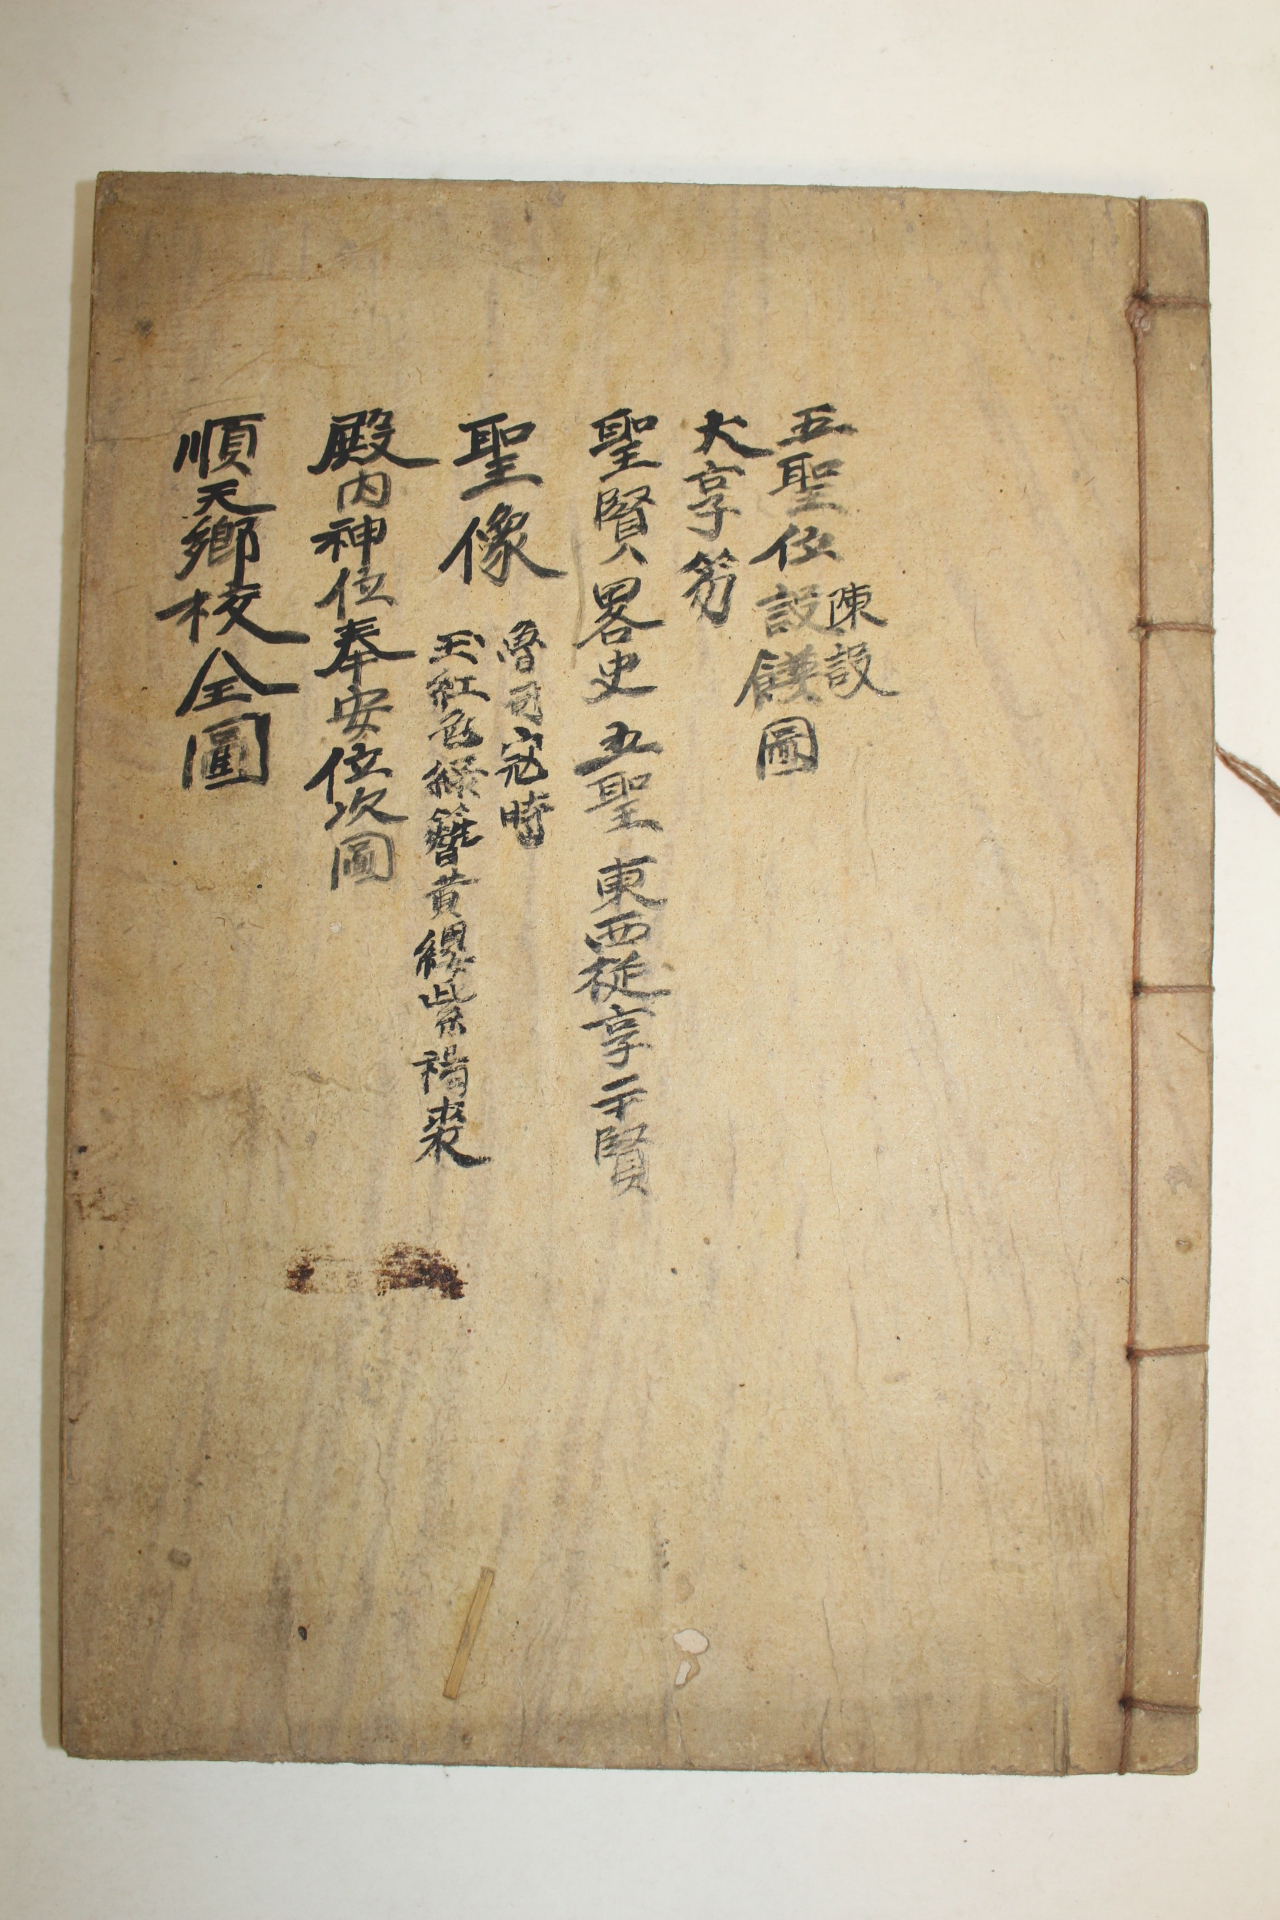 五聖位設饌圖
陳設
大享笏
聖賢畧史 五聖 東西從享二十賢
聖像
魯司寇時
玉紅色緣簪黃纓紫裼裘
殿內神位奉安位次圖
順天鄉校全圖